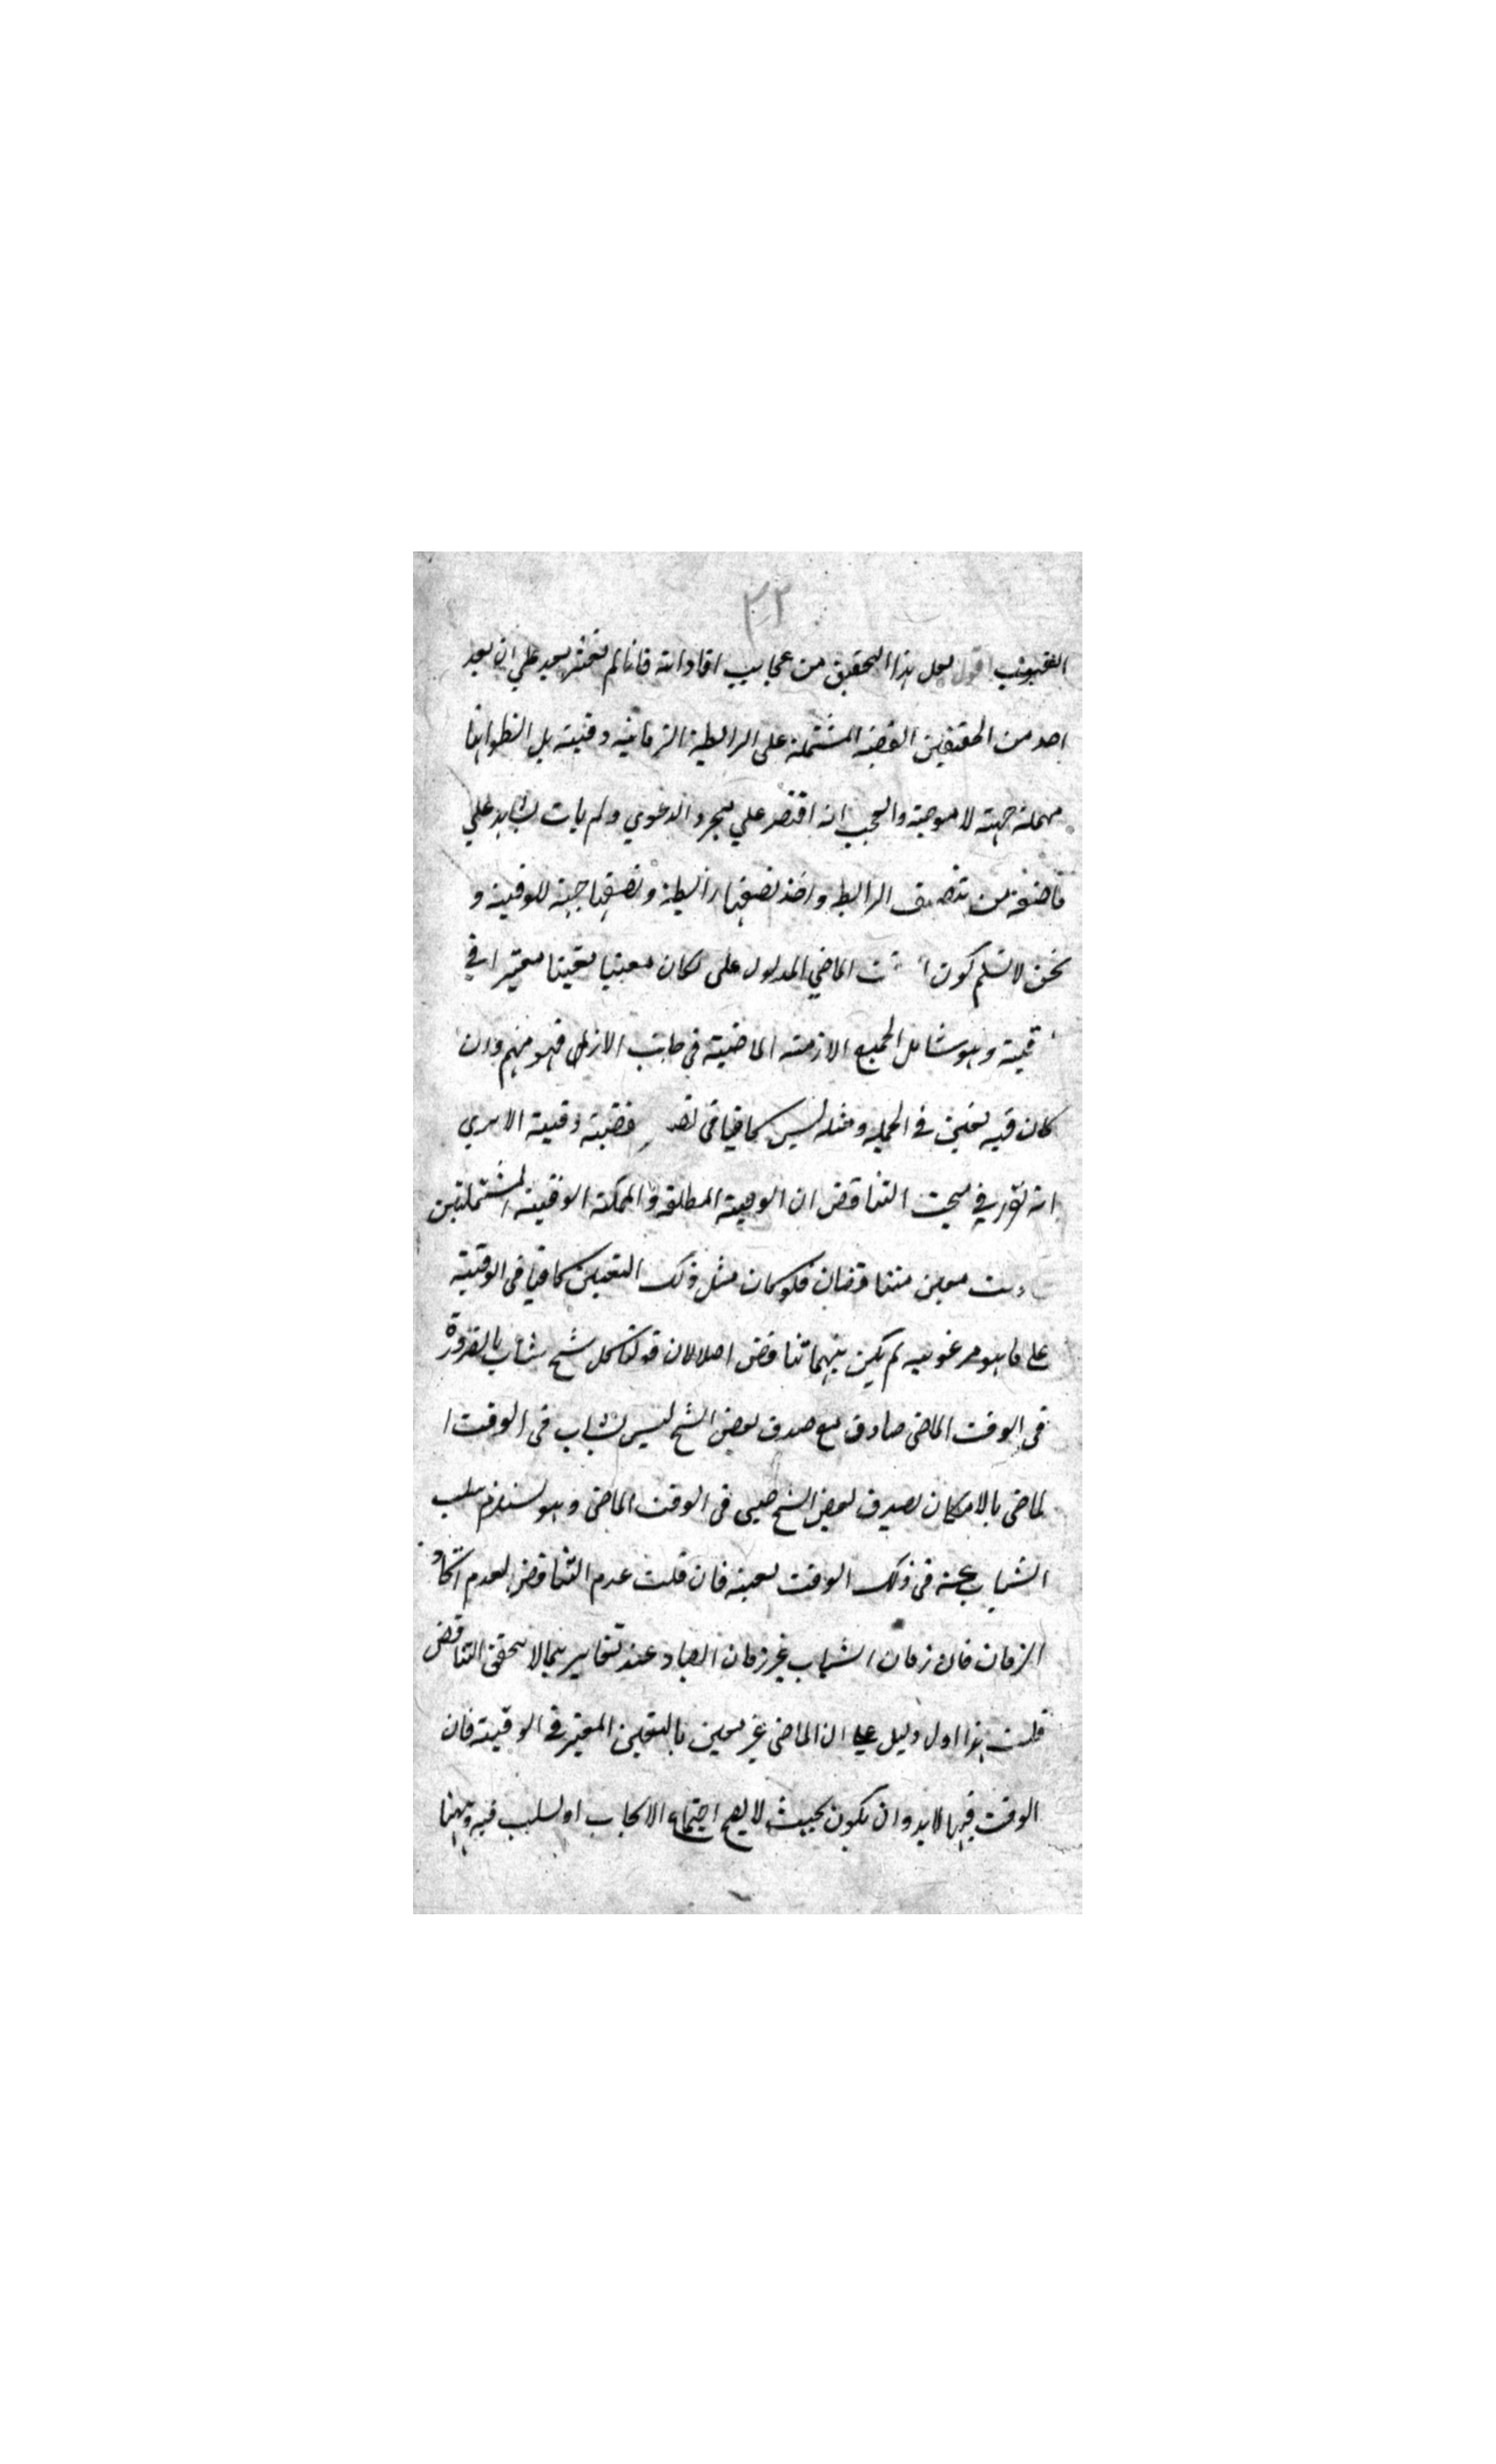 ٣٢
اقول لعل هذا التحقيق من عجايب افاداته فانا لم نعثر بعد علي ان يعد
احد من المحققين القضية المشتملة على الرابطة الزمانية وقتية بل
مهملة جهته لا موجهة والعجب انه اقتصر علي مجرد الدعوي ولم يات بشاهد علي
من تنصيف الرابط واخذ نصفها رابطة ونصفها جهة للوقتية و
نحن لا نسلم كون الماضي المدلول على لكان معينا تعيينا معتبرا في
وهو شامل لجميع الازمنة الماضية في جانب الازل فهو منهم وان
كان فيه تعين في الجملة ومثله ليس كافيا في قضية وقتية الا يري
انه تقرر في مبحث التناقض ان الوقتية المطلقة والممكنة الوقتية المشتملتين
معين متناقضان فلو كان مثل ذلك التعيين كافيا في الوقتية
على ما هو مرغوبه لم يكن بينهما تناقض اصلا لان قولنا كل شيخ شاب بالضرورة
في الوقت الماضي صادق مع صدق بعض الشيخ ليس بشاب في الوقت ا
لماضي بالامكان لصدق بعض الشيخ صبي في الوقت الماضي وهو يستلزم سلب
الشباب عنه في ذلك الوقت بعينه فان قلت عدم التناقض لعدم اتحاد
الزمان فان زمان الشباب غير زمان الصبا وعند تغايرهما لا يتحقق التناقض
قلت هذا اول دليل على ان الماضي غير معين بالتعين المعتبر في الوقتية فان
الوقت فيها لا بد وان يكون بحيث لا يصح اجتماع الايجاب والسلب فيه وههنا